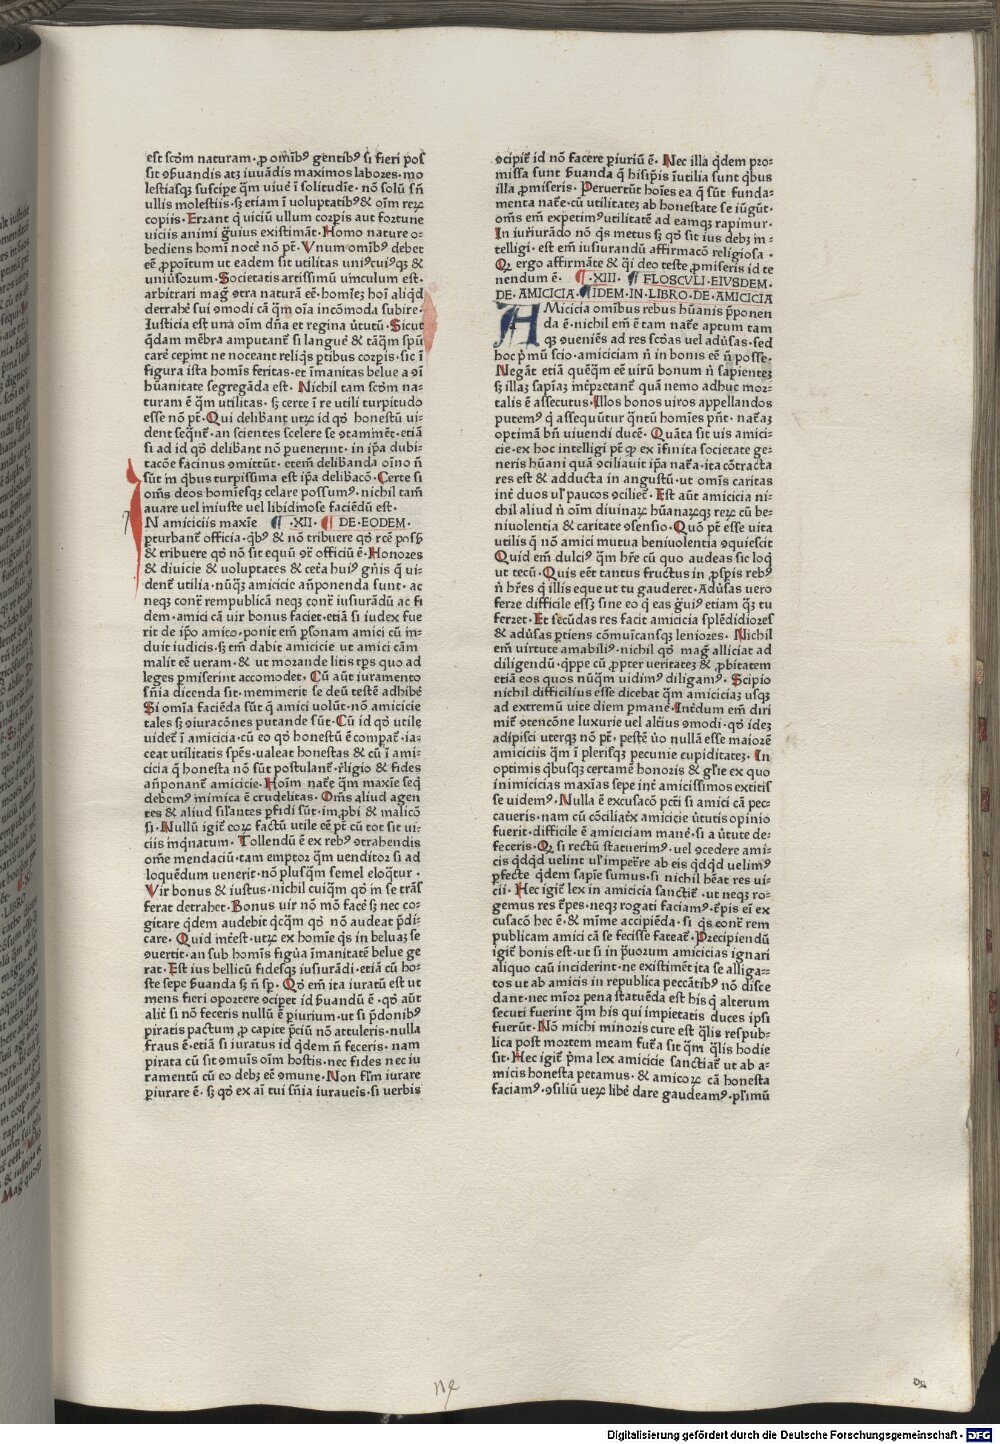 est scđm naturam· ꝓ omībꝰ gentibꝰ si fieri pos
sit ꝯ̄ƀuandis atꝫ iuuādis maximos labores· mo
lestiasqꝫ suscipe q̄m uiue᷑ ī solitudīe· nō solū sn̄
ullis molestiis· sꝫ etiam ī uoluptatibꝰ & oīm reꝝ
copiis· Errant q̄ uiciū ullum corꝑis aut fortune
uiciis animi ḡuius existimāt· Homo nature o-
bediens homī noce᷑ nō pt̄· Vnum omībꝰ debet
eē ꝓpoītum ut eadem sit utilitas uniꝰcuiꝰqꝫ &
uniūsorum· Societatis artissimū uinculum est·
arbitrari mag᷑ ꝯtra naturā eē· homīeꝫ hoī aliqd
detrahe᷑ sui ꝯmodi cā q̄m oīa incōmoda subire·
Iusticia est una oīm dn̄a et regina ūtutū· Sicut
q̄dam mēbra amputant᷑ si langue᷑ & tāq̄m spū
care᷑ ceꝑint ne noceant reliqs ꝑtibus corꝑis· sic ī
figura ista homīs feritas· et īmanitas belue a ꝯī
hūanitate segregāda est· Nichil tam scđm na-
turam ē q̄m utilitas· sꝫ certe ī re utili turpitudo
esse nō pt̄· Qui delibant utꝝ id qđ honestū ui-
dent seqn̄t᷑· an scientes scelere se ꝯtaminēt· etiā
si ad id qđ delibant nō puenerint· in ip̄a dubi-
tacōe facinus ꝯmittūt· etem̄ deliƀanda oīno n̄
sūt in qbus turpissima est ip̄a deliƀacō· Certe si
om̄s deos homīesqꝫ celare possumꝰ· nichil tam̄
auare uel iniuste uel libidinose faciēdū est·
N amiciciis maxīe ¶ ·XII· ¶ DE·EODEM·
ꝑturbant᷑ officia· qbꝰ & nō tribuere qđ rcē possꝫ
& tribuere qđ nō sit equū ꝯt᷑ officiū ē· Honores
& diuicie & uoluptates & cet᷑a huiꝰ gn̄is q̄ ui-
dent᷑ utilia· nūq̄ꝫ amicicie an̄ponenda sunt· ac
neqꝫ cont᷑ rempublicā neqꝫ cont᷑ iusiurādū ac fi
dem· amici cā uir bonus faciet· etiā si iudex fue
rit de ip̄o amico· ponit em̄ ꝑsonam amici cū in-
duit iudicis· sꝫ tm̄ dabit amicicie ut amici cām
malit eē ueram· & ut morande litis tp̄s quo ad
leges ꝑmiserint accomodet· Cū aūt iuramento
sn̄ia dicenda sit· memmerit se deū testē adhibe᷑
Si omīa faciēda sūt q̄ amici uolūt· nō amicicie
tales sꝫ ꝯiuracōnes putande sūt· Cū id qđ utile
uidet᷑ ī amicicia· cū eo qđ honestū ē compat᷑· ia-
ceat utilitatis spēs· ualeat honestas & cū ī ami-
cicia q̄ honesta nō sūt postulant᷑· r̄ligio & fides
an̄ponant᷑ amicicie· Hoīm nat᷑e q̄m maxīe seq
debemꝰ mimica ē crudelitas· Om̄s aliud agen
tes & aliud sil̄antes ꝑfidi sūt· improbi & malicō
si· Nullū igit᷑ coꝝ factū utile eē pt̄ cū tot sit ui-
ciis inqnatum· Tollendū ē ex rebꝰ ꝯtrahendis
om̄e mendaciū· tam emptor q̄m uenditor si ad
loquēdum uenerit· nō plusq̄m semel eloqt᷑ur·
Vir bonus & iustus· nichil cuiq̄m qđ in se trās
ferat detrahet· Bonus uir nō mō face᷑ sꝫ nec co-
gitare q̄dem audebit qcq̄m qđ nō audeat p̄di-
care· Quid int᷑est· utꝝ ex homīe qs in beluaꝫ se
ꝯuertit· an sub homīs figūa īmanitatē belue ge
rat· Est ius bellicū fidesqꝫ iusiurādi· etiā cū ho-
ste sepe ƀuanda sꝫ n̄ sp̄· Qđ em̄ ita iuratū est ut
mens fieri oportere ꝯcipet id ƀuandū ē· qđ aūt
alit᷑ si nō feceris nullū ē ꝑiurium· ut si p̄donibꝰ
piratis pactum ꝓ capite p̄ciū nō attuleris· nulla
fraus ē· etiā si iuratus id q̄dem n̄ feceris· nam
pirata cū sit ꝯmuīs oīm hostis· nec fides nec iu
ramentū cū eo debꝫ eē ꝯmune· Non fl̄m iurare
ꝑiurare ē· sꝫ qđ ex aī tui sn̄ia iuraueis· si uerbis
ꝯcipit᷑ id nō facere ꝑiuriū ē· Nec illa q̄dem pro-
missa sunt ƀuanda q̄ hisip̄is īutilia sunt qbus
illa ꝓmiseris· Peruertūt hoīes ea q̄ sūt funda-
menta nat᷑e· cū utilitateꝫ ab honestate se iūgūt·
om̄s em̄ expetimꝰ utilitatē ad eamqꝫ rapimur·
In iuriurādo nō qs metus sꝫ qđ sit ius debꝫ in-
telligi· est em̄ iusiurandū affirmacō religiosa·
Qꝫ ergo affirmāte & q̄i deo teste ꝓmiseris id te
nendum ē· ¶ ·XIII· ¶ FLOSCVLI·EIVSDEM·
DE·AMICICIA· ¶ IDEM·IN·LIBRO·DE·AMICICIA
AMicicia omībus rebus hūanis p̄ponen
da ē· nichil em̄ ē tam nat᷑e aptum tam
qꝫ ꝯueniēs ad res scđas uel adūsas· sed
hoc p̄mū scio· amiciciam n̄ in bonis eē n̄ posse·
Negāt etiā quēq̄m eē uirū bonum n̄ sapienteꝫ
sꝫ illaꝫ sapīaꝫ int᷑pretant᷑ quā nemo adhuc mor-
talis ē assecutus· Illos bonos uiros appellandos
putemꝰ q̄ assequūtur q̄ntū homīes pn̄t· nat᷑aꝫ
optimā bn̄ uiuendi ducē· Quāta sit uis amici-
cie· ex hoc intelligi pt̄ ꝙ ex īfinita societate ge-
neris hūani quā ꝯciliauit ip̄a nat᷑a· ita cōtracta
res est & adducta in angustū· ut omīs caritas
int᷑ duos ul̄ paucos ꝯciliet᷑· Est aūt amicicia ni-
chil aliud n̄ oīm diuinaꝝ hūanaꝝqꝫ reꝝ cū be-
niuolentia & caritate ꝯsensio· Quō pt̄ esse uita
utilis q̄ nō amici mutua beniuolentia ꝯquiescit
Quid em̄ dulciꝰ q̄m hr̄e cū quo audeas sic loq
ut tecū· Quis eēt tantus fructus in ꝓspis rebꝰ
n̄ hr̄es q̄ illis eque ut tu gauderet· Adūsas uero
ferre difficile essꝫ sine eo q̄ eas ḡuiꝰ etiam q̄ꝫ tu
ferret· Et secūdas res facit amicicia splēdidiores
& adūsas ꝑtiens cōmuīcansqꝫ leniores· Nichil
em̄ uirtute amabiliꝰ· nichil qđ mag᷑ alliciat ad
diligendū· q̄ppe cū ꝓpter ueritateꝫ & ꝓbitatem
etiā eos quos nūq̄m uidimꝰ diligamꝰ· Scipio
nichil difficilius esse dicebat q̄m amiciciaꝫ usqꝫ
ad extremū uite diem ꝑmane᷑· Int᷑dum em̄ diri
mit᷑ ꝯtencōne luxurie uel alt᷑ius ꝯmodi· qđ ideꝫ
adipisci uterqꝫ nō pt̄· pestē ūo nullā esse maiorē
amiciciis q̄m ī plerisqꝫ pecunie cupiditateꝫ· In
optimis qbusqꝫ certamē honoris & gl̄ie ex quo
inimicicias maxīas sepe int᷑ amicissimos extitis
se uidemꝰ· Nulla ē excusacō pct̄i si amici cā pec-
caueris· nam cū cōciliat᷑x amicicie ūtutis opinio
fuerit· difficile ē amiciciam mane᷑· si a ūtute de-
feceris· Qꝫ si rectū statuerimꝰ· uel ꝯcedere ami-
cis q̄dqd uelint ul̄ impet᷑re ab eis q̄dqd uelimꝰ
ꝑfecte q̄dem sapīe sumus· si nichil hēat res ui-
cii· Hec igit᷑ lex in amicicia sanctit᷑· ut neqꝫ ro-
gemus res t᷑pes· neqꝫ rogati faciamꝰ· t᷑pis eī ex
cusacō hec ē· & mīme accipiēda· si qs cont᷑ rem
publicam amici cā se fecisse fateat᷑· Precipiendū
igit᷑ bonis est· ut si in p̄uorum amicicias ignari
aliquo caū inciderint· ne existimēt ita se alliga-
tos ut ab amicis in republica peccātibꝰ nō disce
dant· nec mīor pena statuēda est his q̄ alterum
secuti fuerint q̄m his qui impietatis duces ipsi
fuerūt· Nō michi minoris cure est q̄lis respub-
lica post mortem meam fut᷑a sit q̄m q̄lis hodie
sit· Hec igit᷑ p̄ma lex amicicie sanctiat᷑ ut ab a-
micis honesta petamus· & amicoꝝ cā honesta
faciamꝰ· ꝯsiliū ueꝝ libe᷑ dare gaudeamꝰ· pl̄imū
ne
Digitalisierung gefördert durch die Deutsche Forschungsgemeinschaft · DFG